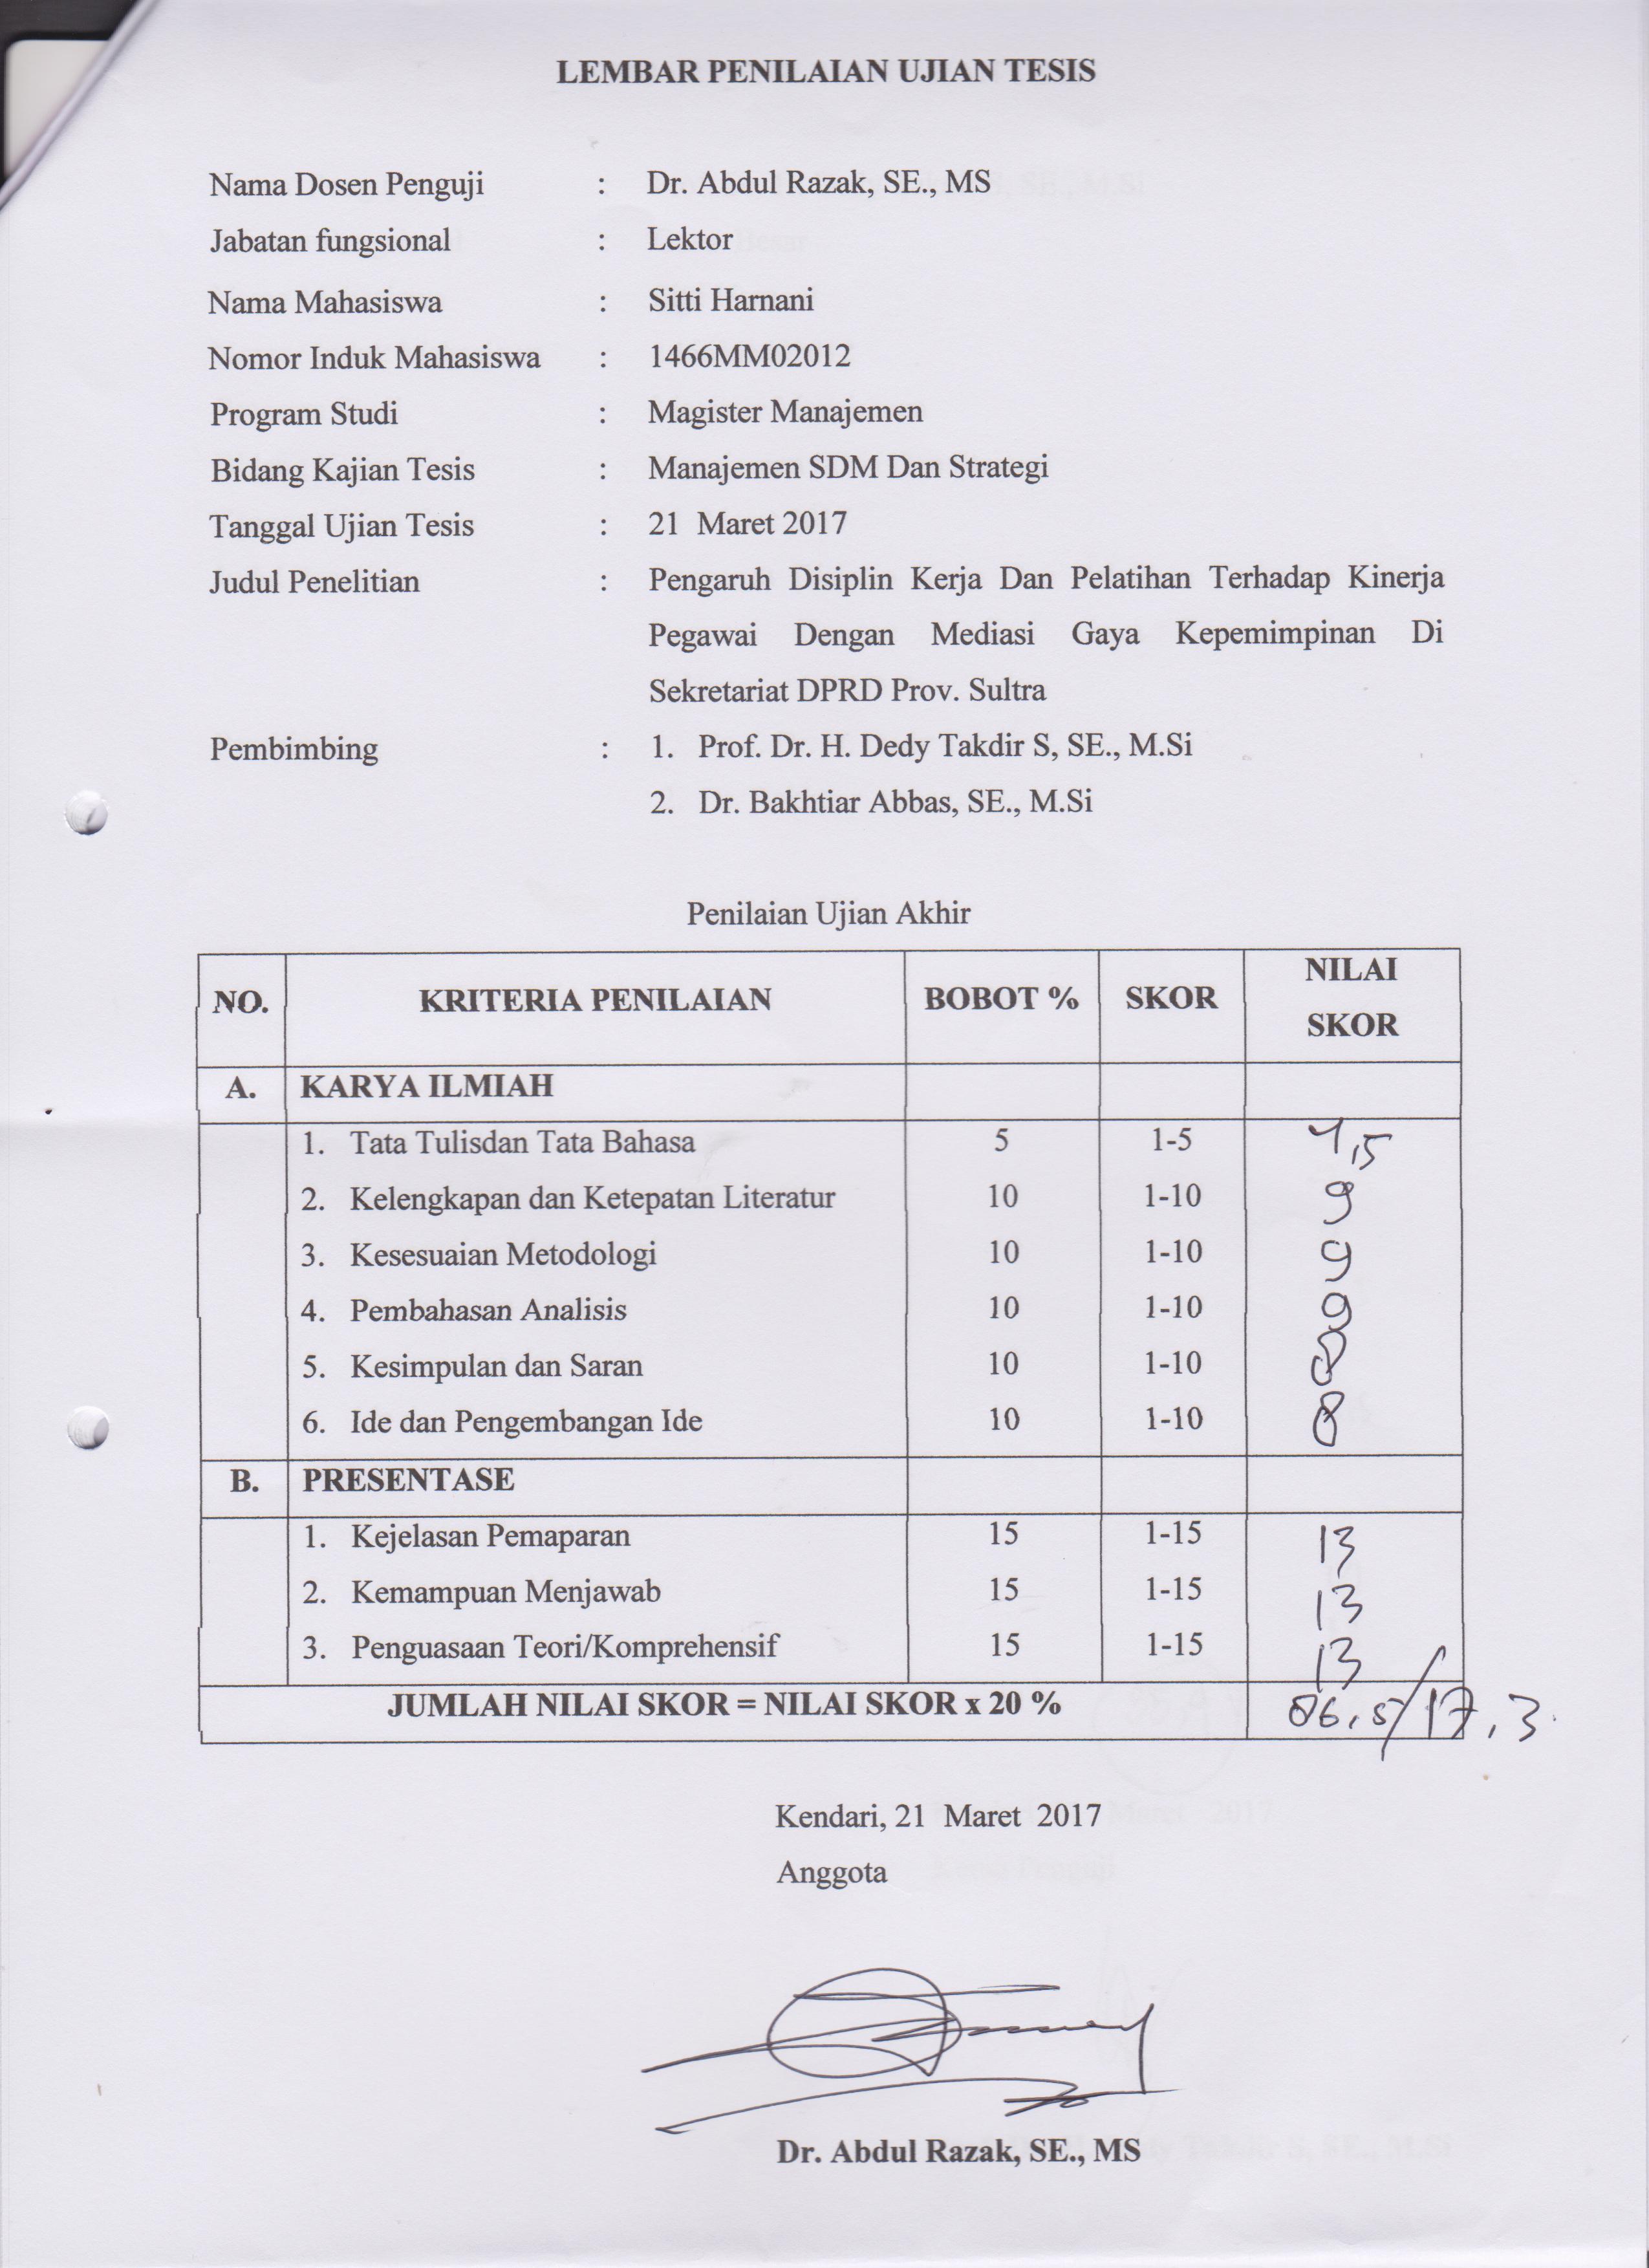 LEMBAR PENILAIAN UJIAN TESIS
Nama Dosen Penguji : Dr. Abdul Razak, SE., MS
Jabatan fungsional : Lektor
Nama Mahasiswa : Sitti Harnani
Nomor Induk Mahasiswa : 1466MM02012
Program Studi : Magister Manajemen
Bidang Kajian Tesis : Manajemen SDM Dan Strategi
Tanggal Ujian Tesis : 21 Maret 2017
Judul Penelitian : Pengaruh Disiplin Kerja Dan Pelatihan Terhadap Kinerja
Pegawai Dengan Mediasi Gaya Kepemimpinan Di
Sekretariat DPRD Prov. Sultra
Pembimbing : 1. Prof. Dr. H. Dedy Takdir S, SE., M.Si
2. Dr. Bakhtiar Abbas, SE., M.Si
Penilaian Ujian Akhir
NO. KRITERIA PENILAIAN BOBOT % SKOR NILAI SKOR
A. KARYA ILMIAH
1. Tata Tulisdan Tata Bahasa 5 1-5 4,5
2. Kelengkapan dan Ketepatan Literatur 10 1-10 9
3. Kesesuaian Metodologi 10 1-10 9
4. Pembahasan Analisis 10 1-10 9
5. Kesimpulan dan Saran 10 1-10 8
6. Ide dan Pengembangan Ide 10 1-10 8
B. PRESENTASE
1. Kejelasan Pemaparan 15 1-15 13
2. Kemampuan Menjawab 15 1-15 13
3. Penguasaan Teori/Komprehensif 15 1-15 13
JUMLAH NILAI SKOR = NILAI SKOR x 20 % 86,5/17,3
Kendari, 21 Maret 2017
Anggota
Dr. Abdul Razak, SE., MS